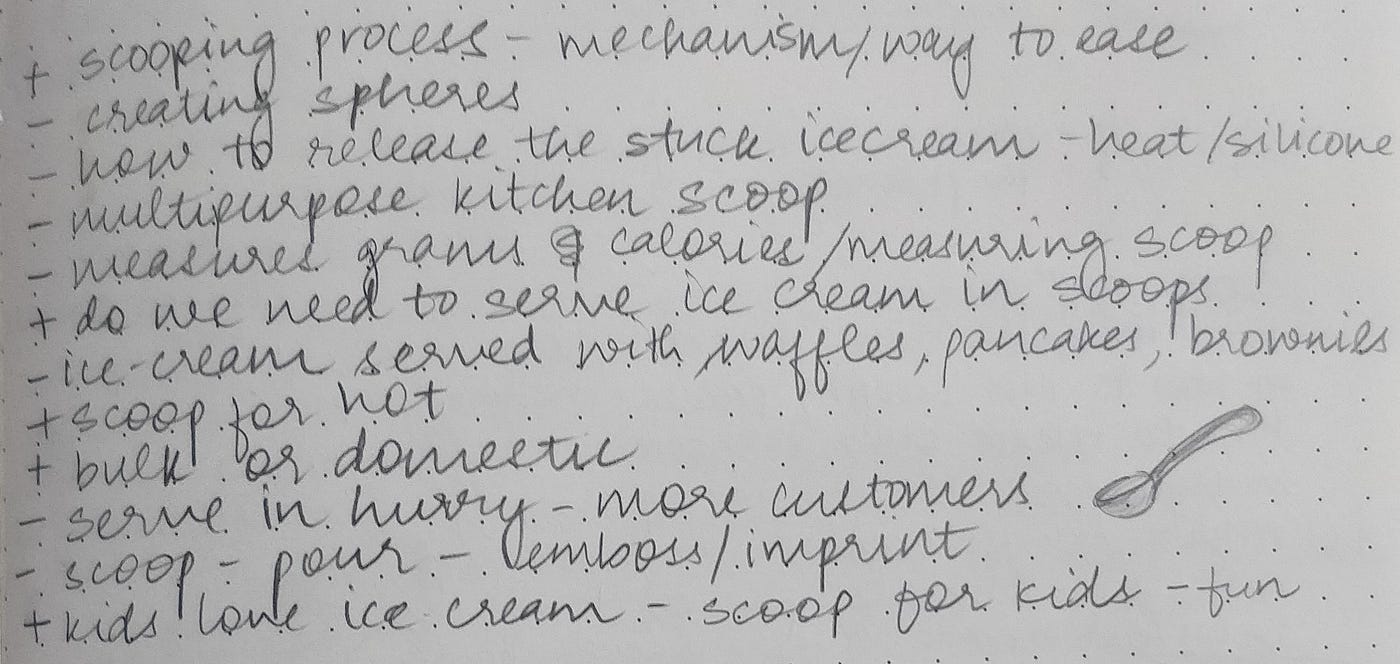 + scooping process - mechanism/way to ease
- creating spheres
- how to release the stuck icecream - heat/silicone
- multipurpose kitchen scoop
- measures grams & calories/measuring scoop
+ do we need to serve ice cream in scoops
- ice-cream served with waffles, pancakes, brownies
+ scoop for hot
+ bulk or domestic
- serve in hurry - more customers
- scoop - pour - emboss/imprint
+ kids love ice cream - scoop for kids - fun